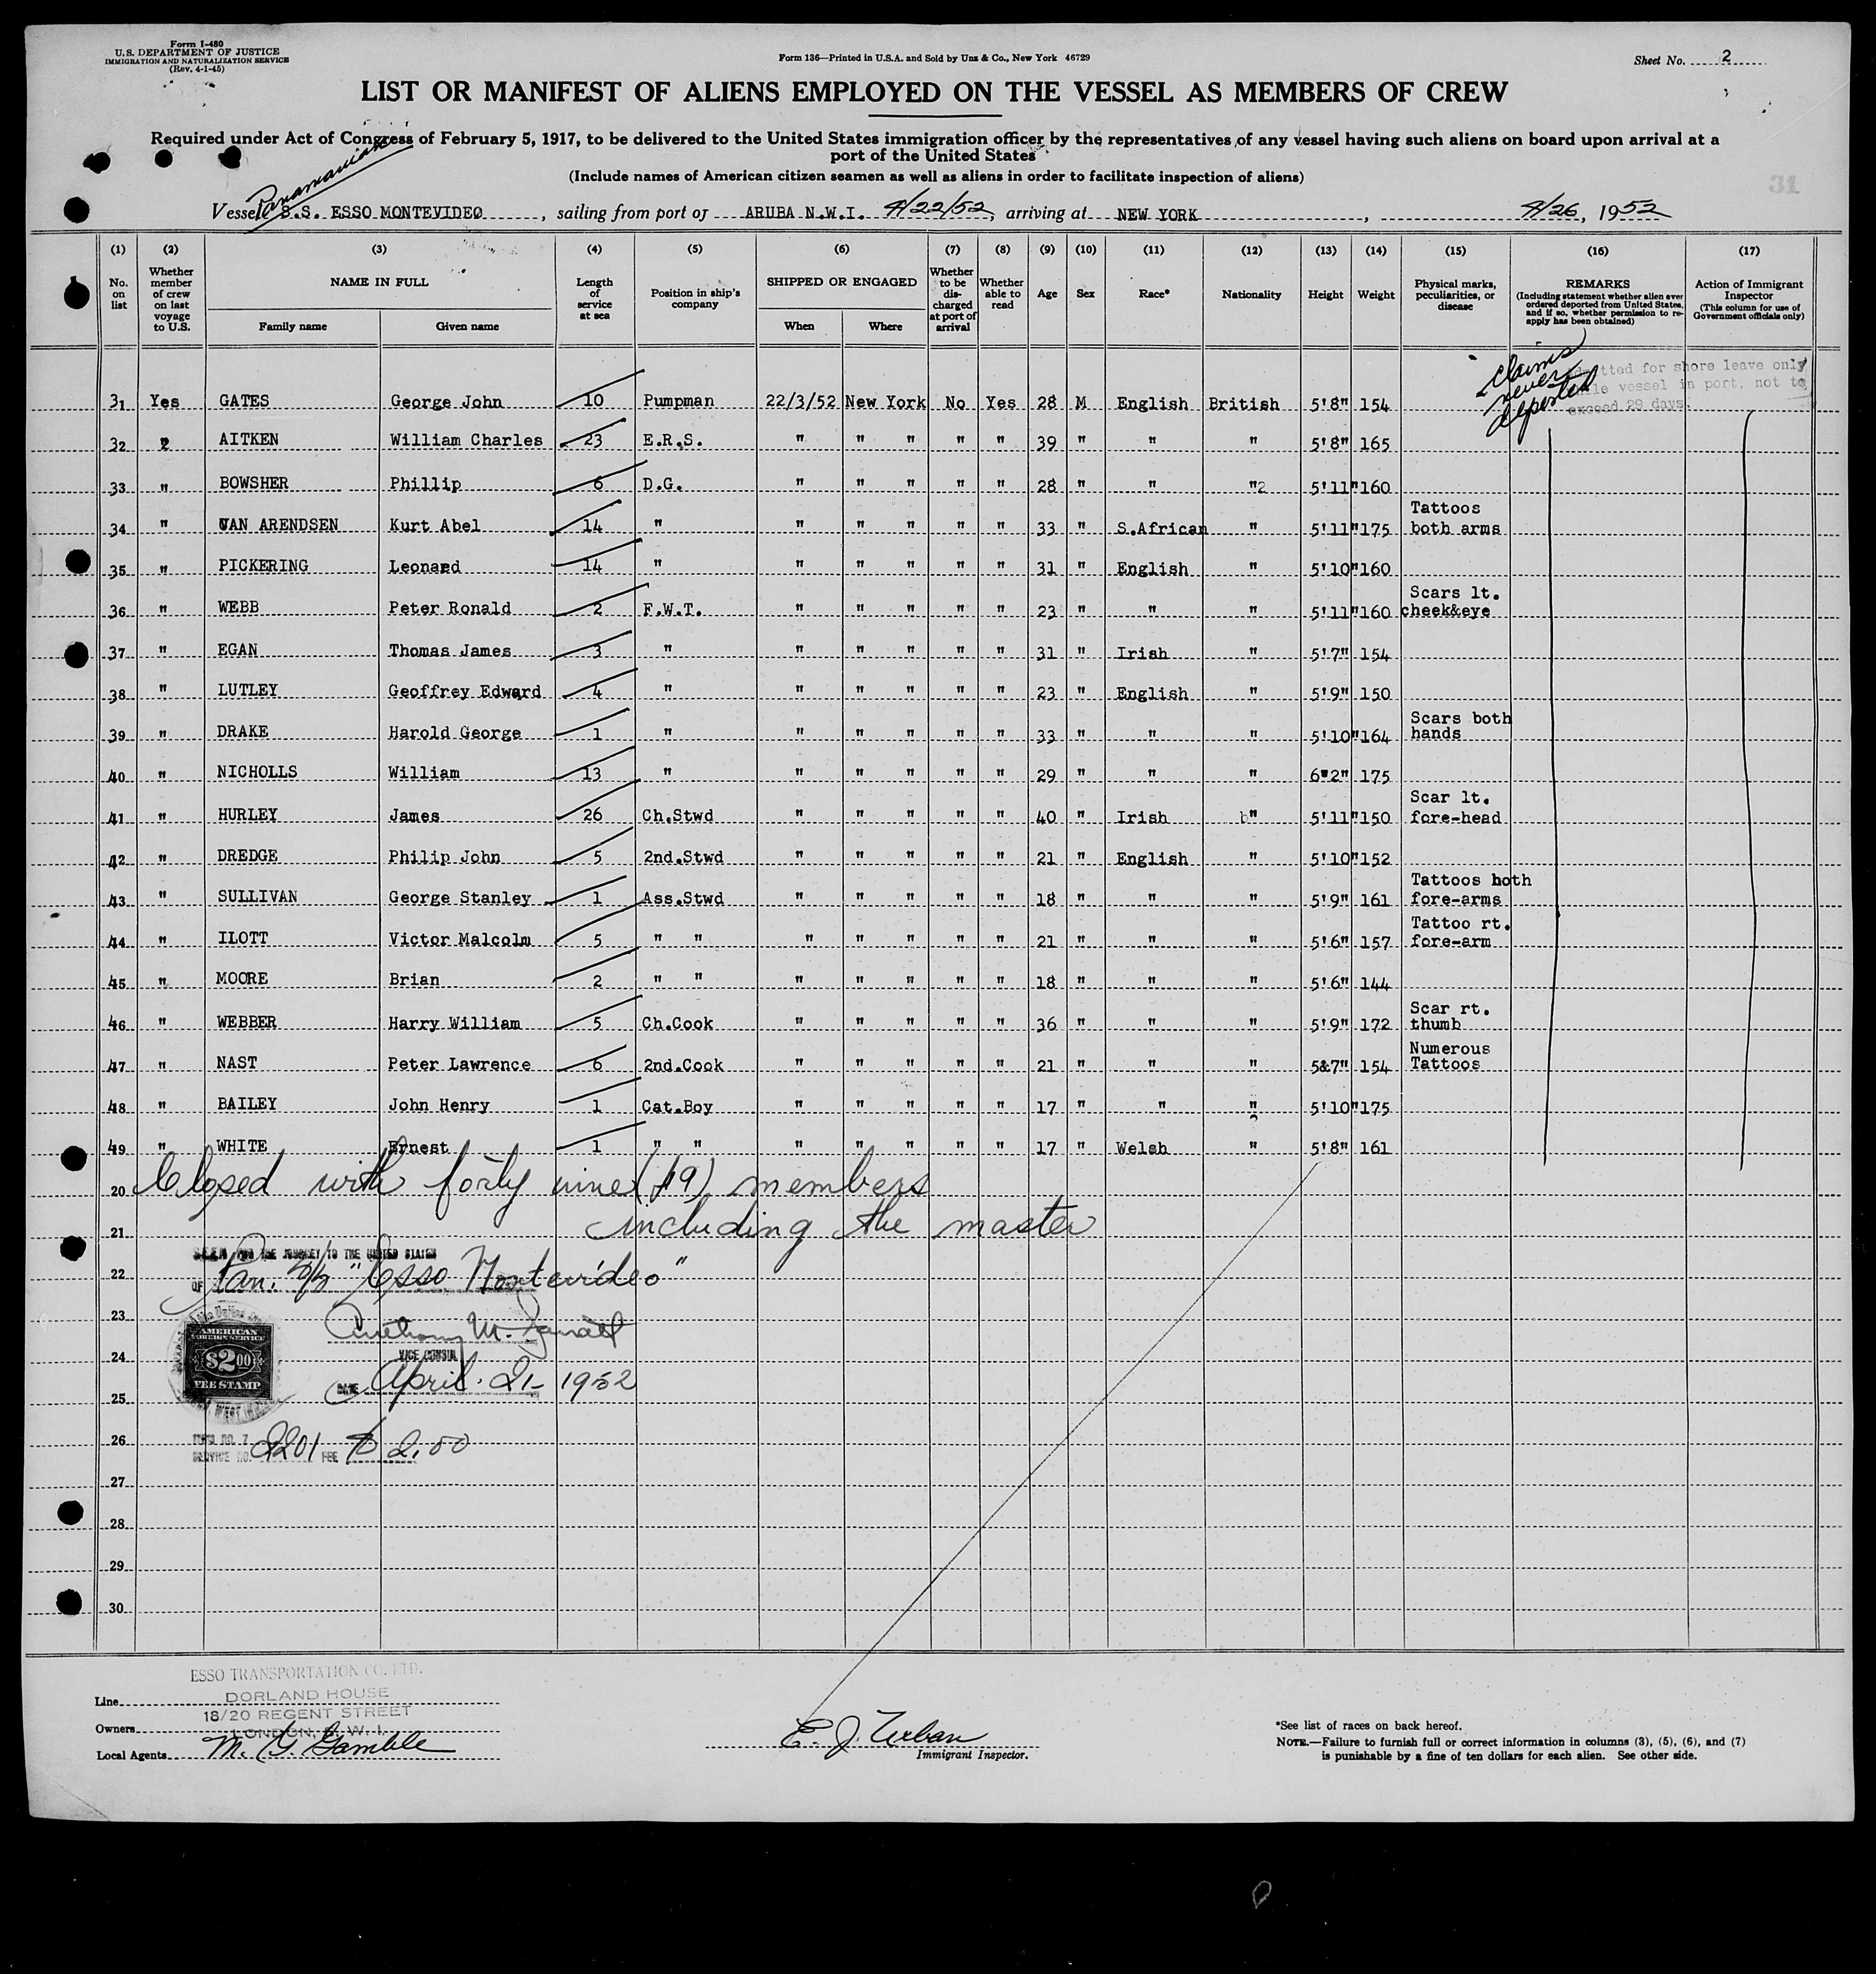 Form I-480
U.S. DEPARTMENT OF JUSTICE
IMMIGRATION AND NATURALIZATION SERVICE
(Rev. 4-1-45)
Form 136—Printed in U.S.A. and Sold by Unz & Co., New York 46729
Sheet No. 2
LIST OR MANIFEST OF ALIENS EMPLOYED ON THE VESSEL AS MEMBERS OF CREW
Required under Act of Congress of February 5, 1917, to be delivered to the United States immigration officer by the representatives of any vessel having such aliens on board upon arrival at a
port of the United States
(Include names of American citizen seamen as well as aliens in order to facilitate inspection of aliens)
31
Panamanian
Vessel S.S. ESSO MONTEVIDEO, sailing from port of ARUBA N.W.I. 4/22/52, arriving at NEW YORK, 4/26, 1952
(1) (2) (3) (4) (5) (6) (7) (8) (9) (10) (11) (12) (13) (14) (15) (16) (17)
No. on list
Whether member of crew on last voyage to U.S.
NAME IN FULL
Family name
Given name
Length of service at sea
Position in ship's company
SHIPPED OR ENGAGED
When
Where
Whether to be discharged at port of arrival
Whether able to read
Age
Sex
Race*
Nationality
Height
Weight
Physical marks, peculiarities, or disease
REMARKS
(Including statement whether alien ever ordered deported from United States, and if so, whether permission to re-apply has been obtained)
Action of Immigrant Inspector
(This column for use of Government officials only)
claims never deported
admitted for shore leave only
while vessel in port, not to
exceed 29 days.
31 Yes GATES George John 10 Pumpman 22/3/52 New York No Yes 28 M English British 5'8" 154
32 " AITKEN William Charles 23 E.R.S. " " " " " 39 " " " 5'8" 165
33 " BOWSHER Phillip 6 D.G. " " " " " 28 " " " 5'11" 160
34 " VAN ARENDSEN Kurt Abel 14 " " " " " " 33 " S.African " 5'11" 175 Tattoos both arms
35 " PICKERING Leonard 14 " " " " " " 31 " English " 5'10" 160
36 " WEBB Peter Ronald 2 F.W.T. " " " " " 23 " " " 5'11" 160 Scars lt. cheek&eye
37 " EGAN Thomas James 3 " " " " " " 31 " Irish " 5'7" 154
38 " LUTLEY Geoffrey Edward 4 " " " " " " 23 " English " 5'9" 150
39 " DRAKE Harold George 1 " " " " " " 33 " " " 5'10" 164 Scars both hands
40 " NICHOLLS William 13 " " " " " " 29 " " " 6"2" 175
41 " HURLEY James 26 Ch.Stwd " " " " " 40 " Irish " 5'11" 150 Scar lt. fore-head
42 " DREDGE Philip John 5 2nd.Stwd " " " " " 21 " English " 5'10" 152
43 " SULLIVAN George Stanley 1 Ass.Stwd " " " " " 18 " " " 5'9" 161 Tattoos both fore-arms
44 " ILOTT Victor Malcolm 5 " " " " " " " 21 " " " 5'6" 157 Tattoo rt. fore-arm
45 " MOORE Brian 2 " " " " " " " 18 " " " 5'6" 144
46 " WEBBER Harry William 5 Ch.Cook " " " " " 36 " " " 5'9" 172 Scar rt. thumb
47 " NAST Peter Lawrence 6 2nd.Cook " " " " " 21 " " " 5&7" 154 Numerous Tattoos
48 " BAILEY John Henry 1 Cat.Boy " " " " " 17 " " " 5'10" 175
49 " WHITE Ernest 1 " " " " " " " 17 " Welsh " 5'8" 161
20 Closed with forty nine (49) members
21 including the master
SEEN FOR THE JOURNEY TO THE UNITED STATES
22 OF Pan. S/S "Esso Montevideo"
23 Anthony M.
AMERICAN FOREIGN SERVICE
$2.00
FEE STAMP
24 VICE CONSUL
DATE April 21- 1952
25
26 SERVICE NO. 2201 FEE $ 2.00
27
28
29
30
ESSO TRANSPORTATION CO. LTD.
Line DORLAND HOUSE
18/20 REGENT STREET
Owners LONDON, S.W.1.
Local Agents M. G. Gamble
E. J. Urban
Immigrant Inspector.
*See list of races on back hereof.
NOTE.—Failure to furnish full or correct information in columns (3), (5), (6), and (7)
is punishable by a fine of ten dollars for each alien. See other side.